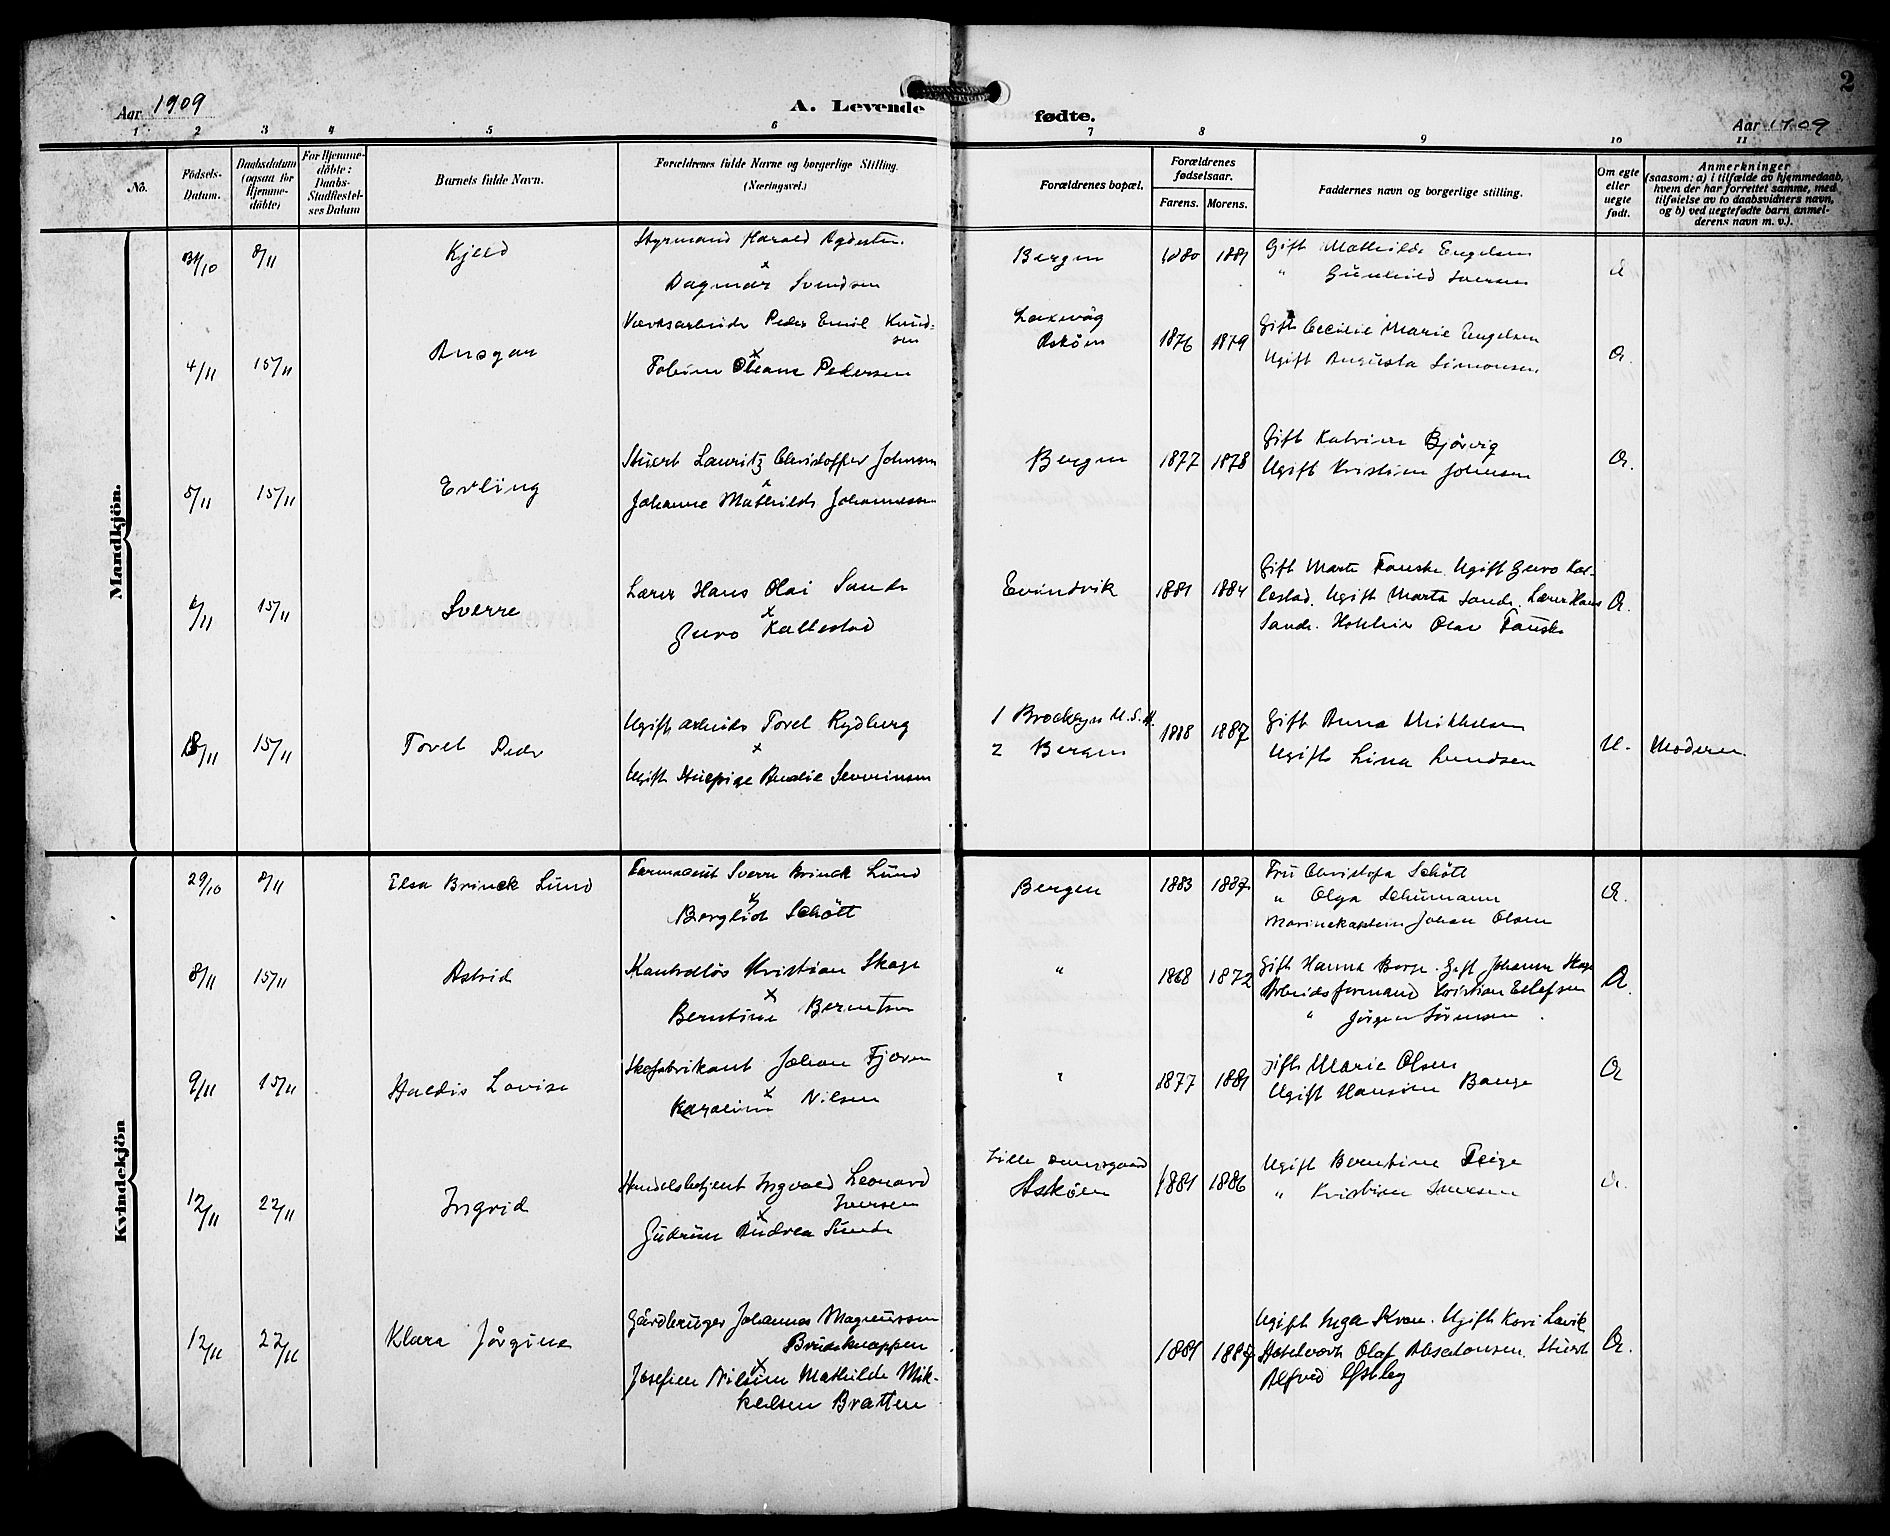 Aar 1909
A. Levende
fødte.
2
Aar 1909
1 2 3 4 5 6 7 8 9 10 11
No.
Födsels-
Datum.
Daabsdatum
(ogsaa for
Hjemme-
döbte)
For Hjemme-
döbte:
Daabs-
Stadfæstel-
ses Datum
Barnets fulde Navn.
Forældrenes fulde Navne og borgerlige Stilling.
(Næringsvei.)
Forældrenes bopæl.
Forældrenes
fødselsaar.
Farens. Morens.
Faddernes navn og borgerlige stilling.
Om egte
eller
uegte
født.
Anmerkninger
(saasom: a) i tilfælde av hjemmedaab,
hvem der har forrettet samme, med
tilføielse av to daabsvidners navn,
og b) ved uegtefødte barn anmel-
derens navn m. v.).
Mandkjön.
31/10 8/11 Kjeld
Styrmand Harald
x
Dagmar Svendsen
Bergen 1880 1881
Gift Mathilde Engelsen
" Gunhild Iversen
Æ
4/11 15/11 Ansgar
Verksarbeider Peder Emil Knud-
sen
x
Oleane Pedersen
Laxevåg
Askøen
1876 1879
Gift Cecilie Marie Engelsen
Ugift Augusta Simonsen
Æ
5/11 15/11 Erling
Stuert Lauritz Christoffer Johnsen
x
Johanne Mathilde Johannessen
Bergen 1877 1878
Gift Katrine Bjørvig
Ugift Kristine Johnsen
Æ.
6/11 15/11 Sverre
Lærer Hans Olai Sande
x
Guro Kallestad
Evindvik 1881 1884
Gift Marta Fauske Ugift Guro Kal-
lestad. Ugift Marta Sande. Lærer Hans
Sande. Olav Fauske
Æ.
8/11 15/11 Torel Peder
Ugift arbeider Torel Rydberg
x
Ugift Stuepige Amalie Severinsen
1 Brooklyn U.S.A.
2 Bergen
1888 1887
Gift Anna Mikkelsen
Ugift Lina Lundsen
U. Moderen.
Kvindekjön
29/10 8/11 Elsa Brinck Lund
Farmaceut Sverre Brinck Lund
x
Bergliot Schött
Bergen 1883 1887
Fru Christofa Schött
" Olga Schumann
Marinekaptein Johan Olsen
Æ.
8/11 15/11 Astrid
Kontrollør Kristian Skage
x
Berntine Berntsen
" 1868 1872
Gift Hanna Berge. Gift Johanna Skage
Arbeidsformand Kristian Ellefsen
" Jörgen Sörensen.
Æ.
9/11 15/11 Haldis Lovise
Skofabrikant Johan Fjæren
x
Karoline Nilsen
" 1877 1881
Gift Marie Olsen
Ugift Hansine Bange
Æ
12/11 22/11 Ingrid
Handelsbetjent Ingvald Leonard
Iversen
x
Gudrun Andrea Sunde
Lille Damsgaard
Askøen
1881 1886
Ugift Berntine Feige
" Kristine Iversen
Æ.
12/11 22/11 Klara Jørgine
Gårdbruger Johannes Magnussen
Bruseknappen
x
Josefine Nilsine Mathilde Mik-
kelsen Bratten
1881 1887
Ugift Inga Kvam. Ugift Kari Lavik
Olaf Absalonsen. Stuert
Alfred
Æ.